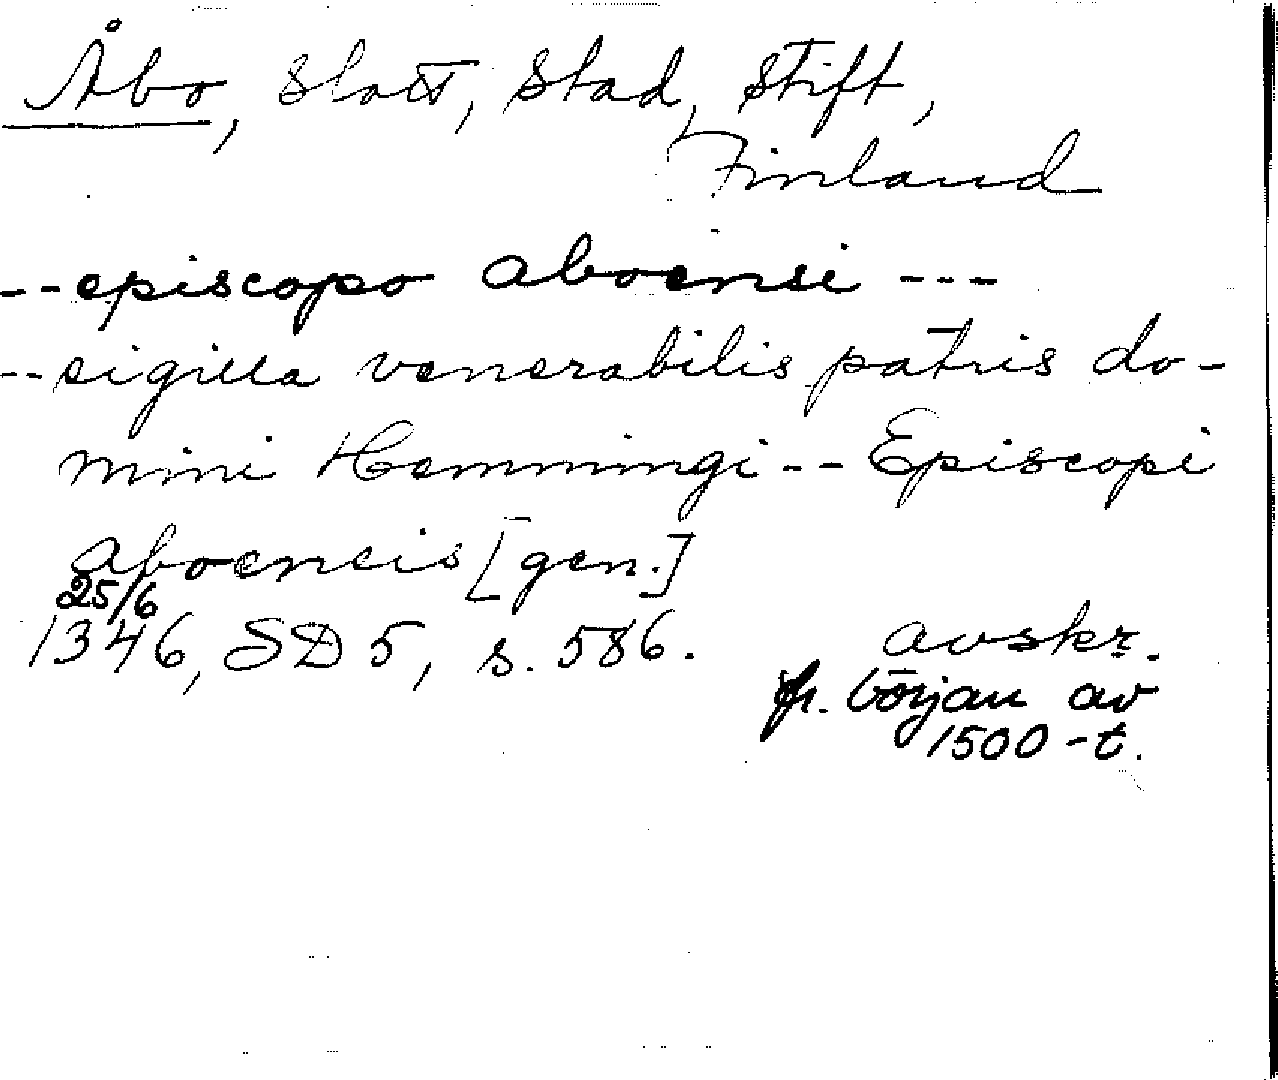 Åbo, Slott, Stad, Stift,
Finland
-- episcopo aboensi ---
-- sigilla venerabilis patris do-
mini Hemmingi -- Episcopi
aboensis [gen.]
25/6
1346, SD 5, s. 586. avskr.
fr. början av
1500-t.